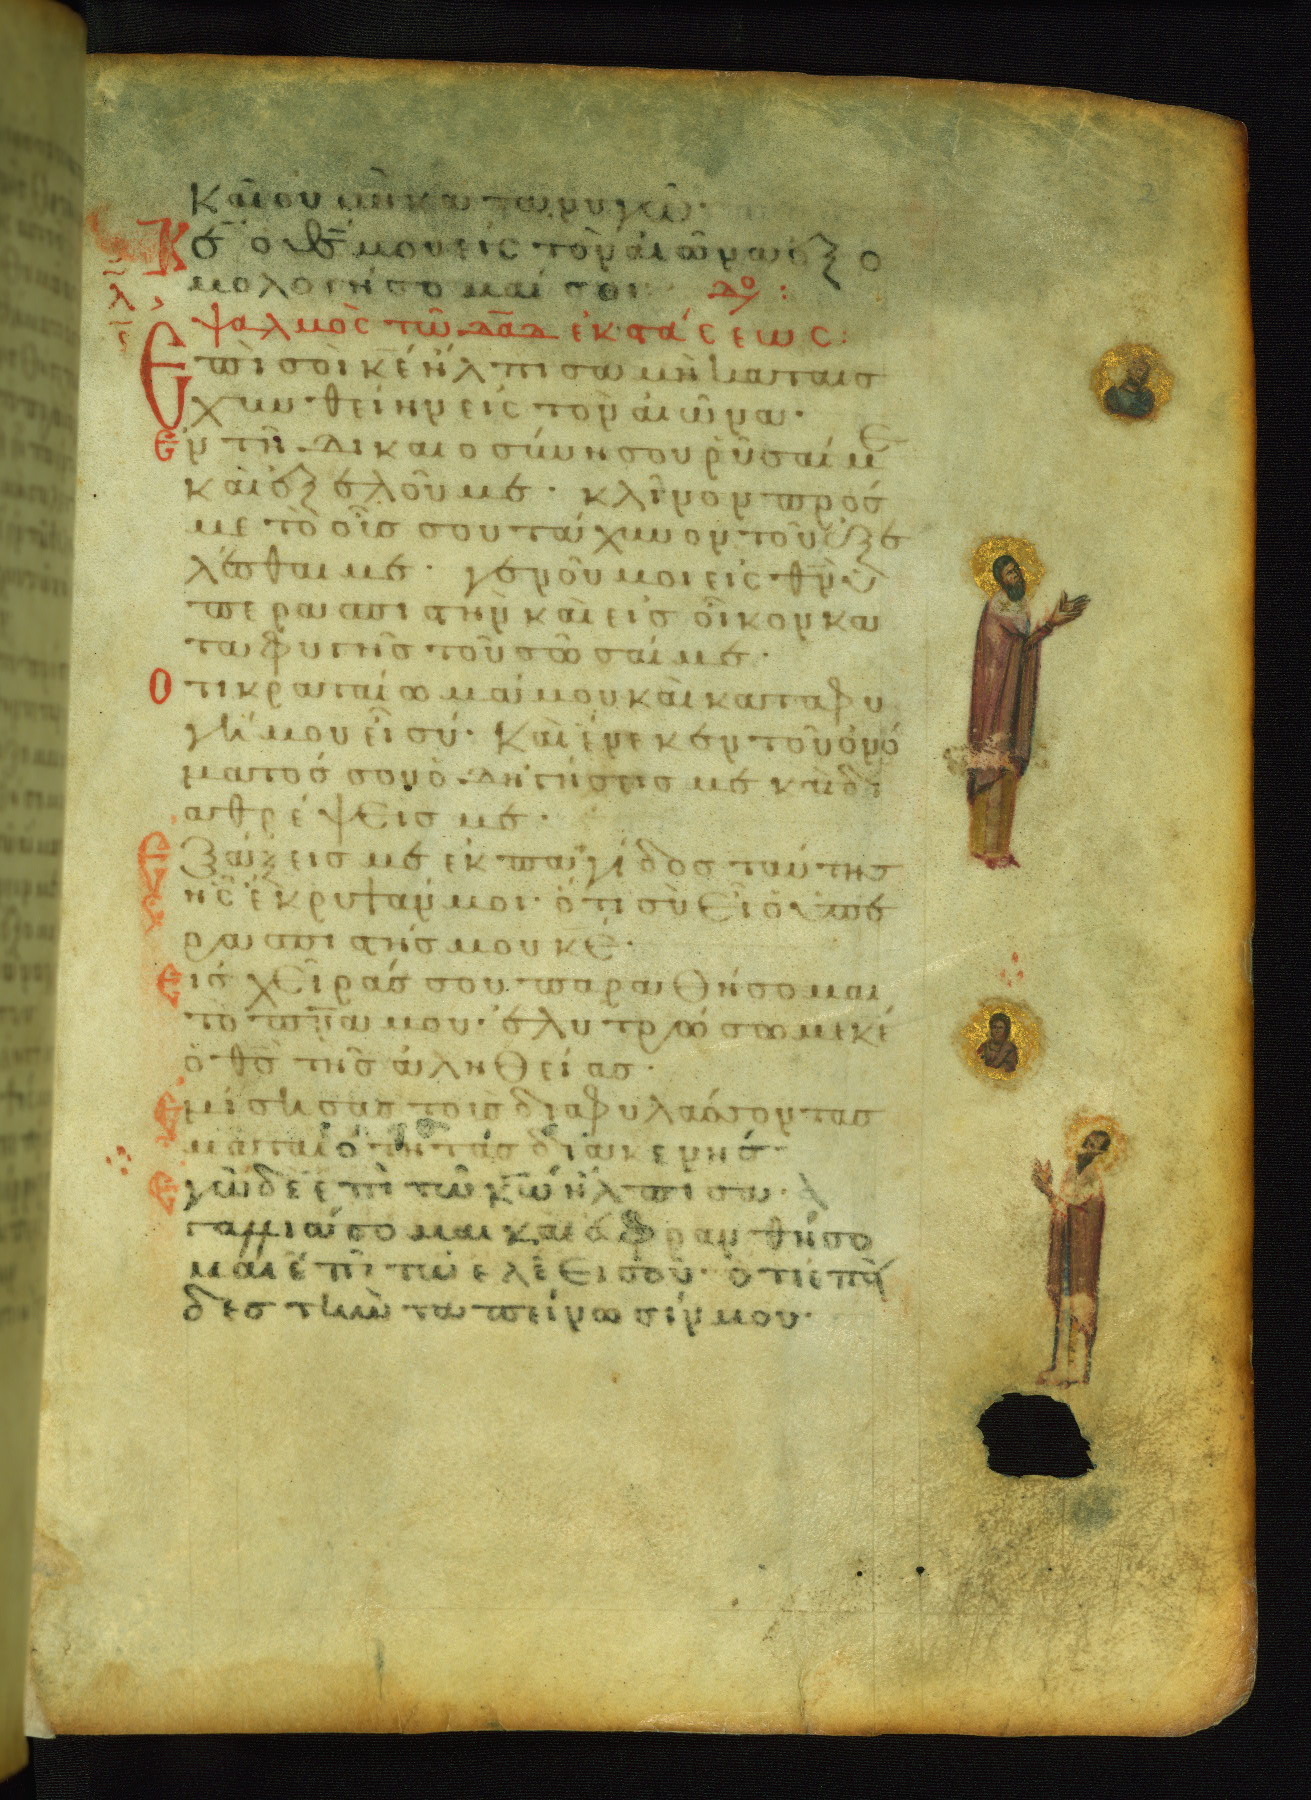 Καὶ οὐ μὴ κατανυγῶ·
Κε ὁ θς μου εἰς τὸν αἰῶνα ἐξο
μολογήσομαί σοι·
λ
ψαλμὸς τῶ δαδ ἐκστάσεως:
Ἐπὶ σοὶ κε ἤλπισα μὴ καταισ
χυνθείην εἰς τὸν αἰῶνα·
Ἐν τῆ δικαιοσύνη σου ῥῦσαί με
καὶ ἐξελοῦ με· κλῖνον πρός
με τὸ οὖς σου τάχυνον τοῦ ἐξε
λέσθαι με· γενοῦ μοι εἰς θν ὑ
περασπιστὴν καὶ εἰς οἶκον κα
ταφυγῆς τοῦ σῶσαί με·
Ὅτι κραταίωμά μου καὶ καταφυ
γή μου εἶ σύ· Καὶ ἕνεκεν τοῦ ὀνό
ματός σου ὁδηγήσεις με καὶ δι
αθρέψεις με·
Ἐξάξεις με ἐκ παγίδος ταύτης
ἧς ἔκρυψάν μοι· ὅτι σὺ εἶ ὁ ὑπε
ρασπιστής μου κε·
Εἰς χεῖράς σου παραθήσομαι
τὸ πνα μου· ἐλυτρώσω με κε
ὁ θς τῆς ἀληθείας·
Ἐμίσησας τοὺς διαφυλάσσοντας
ματαιότητας διακενῆς·
Ἐγὼ δὲ ἐπὶ τῶ κω ἤλπισα· ἀ
γαλλιάσομαι καὶ εὐφρανθήσο
μαι ἐπὶ τῶ ἐλέει σου· ὅτι ἐπῆ
δες τὴν ταπείνωσίν μου·